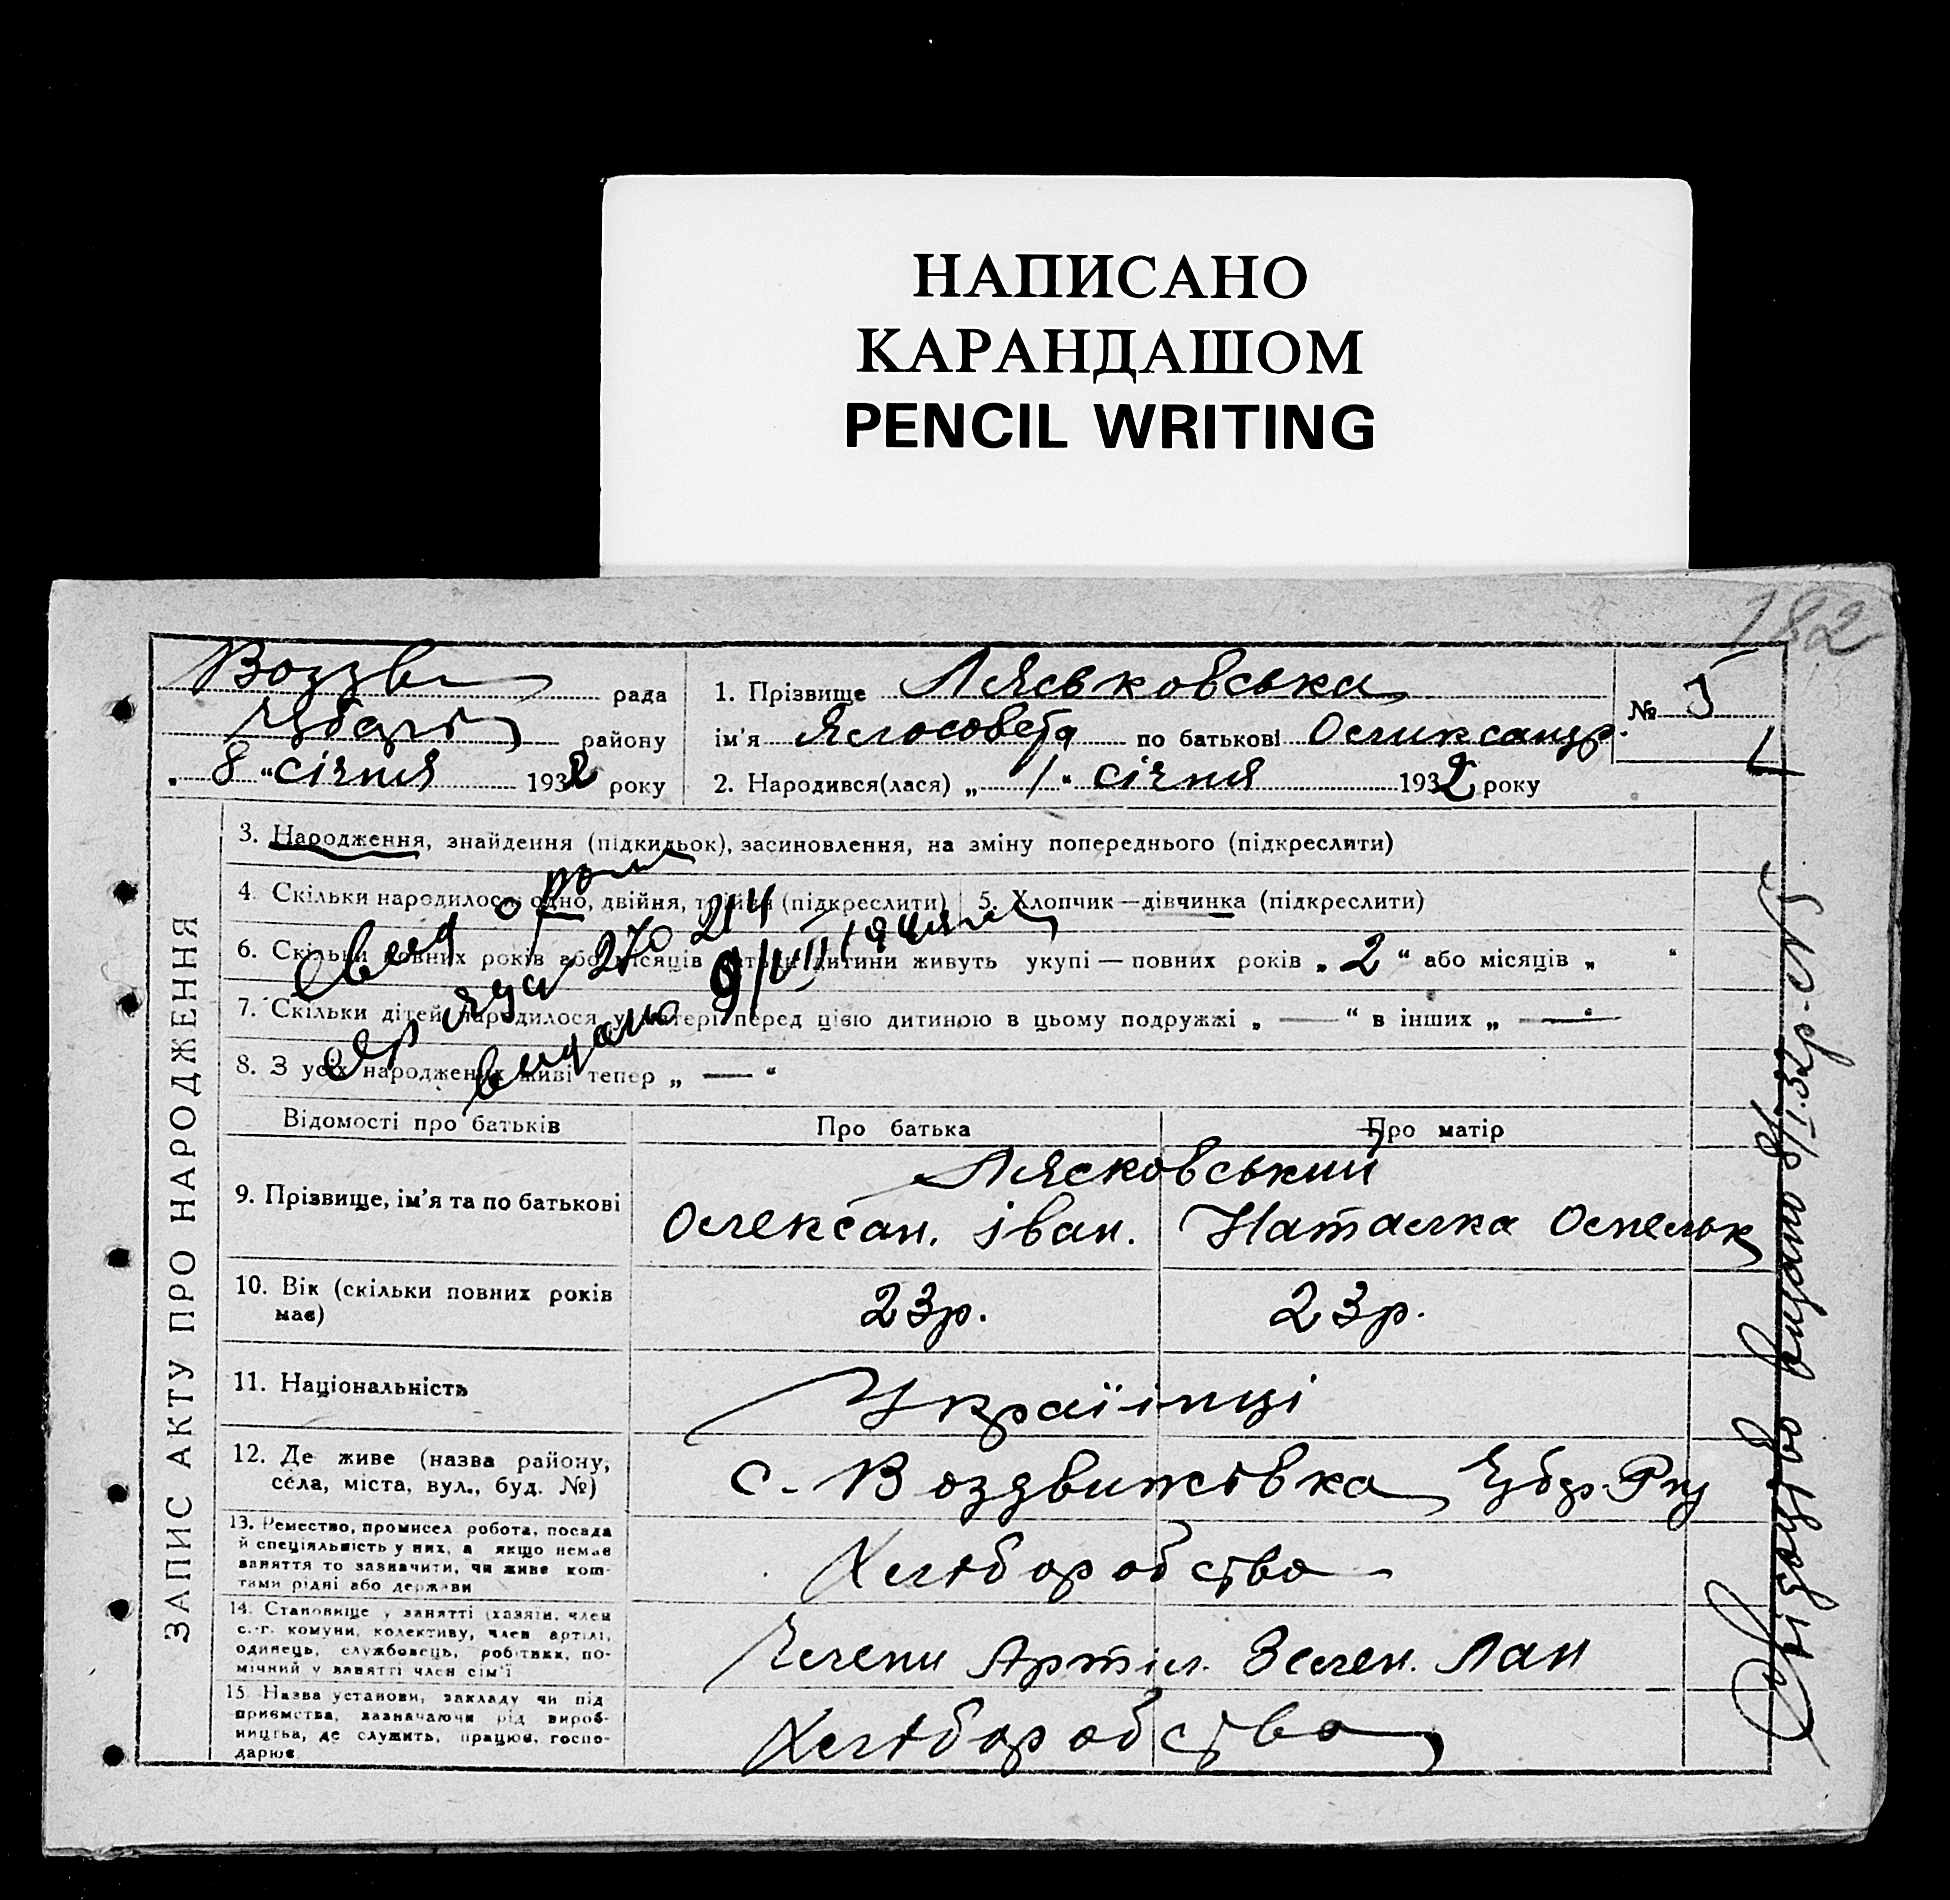 НАПИСАНО
КАРАНДАШОМ
PENCIL WRITING
182
ЗАПИС АКТУ ПРО НАРОДЖЕННЯ
Воздв рада
району
„ 8 “ січня 1932 року
1. Прізвище Ляськовська
ім'я по батькові Олександр.
2. Народився(лася) „ 1 “ січня 1932 року
№ 5
3. Народження, знайдення (підкидьок), засиновлення, на зміну попереднього (підкреслити)
4. Скільки народилося: одно, двійня, трійня (підкреслити) 5. Хлопчик—дівчинка (підкреслити)
6. Скільки повних років або місяців батьки дитини живуть укупі — повних років „ 2 “ або місяців „ “
7. Скільки дітей народилося у матері перед цією дитиною в цьому подружжі „ — “ в інших „ — “
8. З усіх народжених живі тепер „ — “
270 214
видано 9/VIII
Відомості про батьків Про батька Про матір
9. Прізвище, ім'я та по батькові
Лясковський
Олексан. Іван. Наталка
10. Вік (скільки повних років має) 23р. 23р.
11. Національність Україінці
12. Де живе (назва району, села, міста, вул., буд. №) с. Воздвижівка
13. Ремество, промисел робота, посада й спеціяльність у них, а якщо немає заняття то зазначити, чи живе коштами рідні або держави Хліборобство
14. Становище у занятті (хазяїн, член с.-г. комуни, колективу, член артілі, одинець, службовець, робітник, помічний у занятті член сім'ї Члени Артіл. Зелен. Лан
15. Назва установи, закладу чи підприємства, зазначаючи рід виробництва, де служить, працює, господарює Хліборобство
видано 8/I.32р. №5